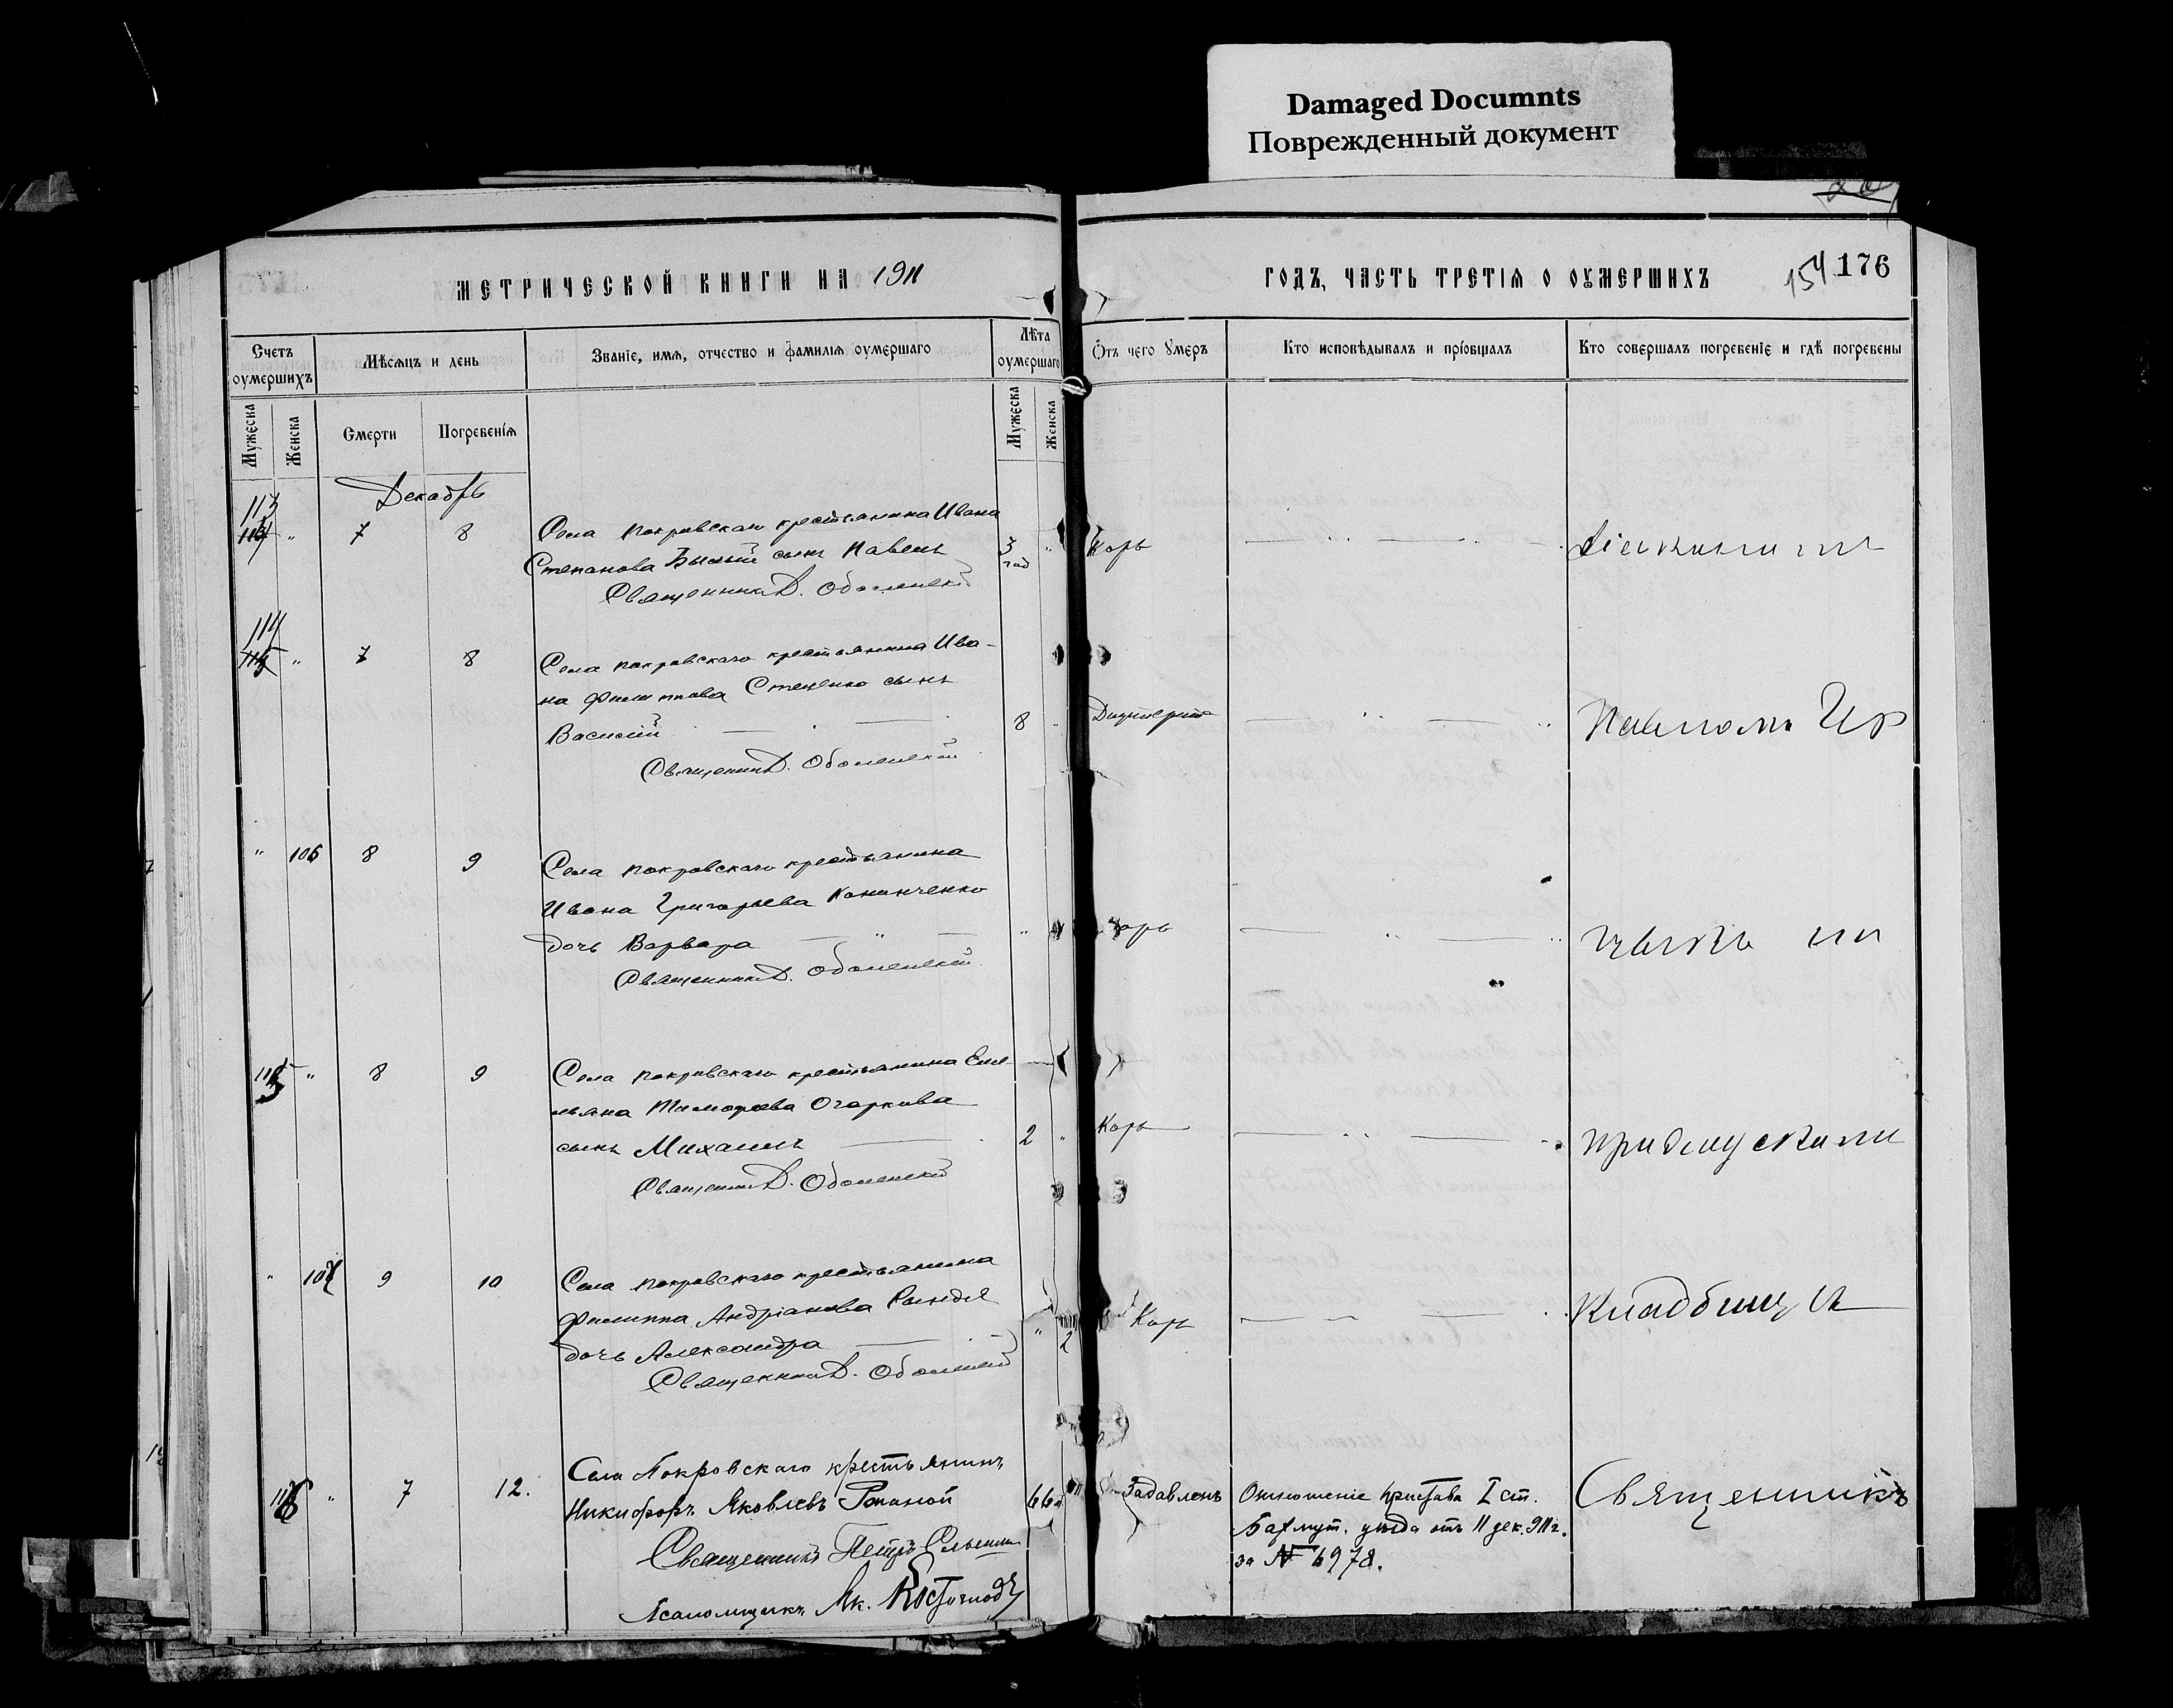 Damaged Documnts
Поврежденный документ
МЕТРИЧЕСКОЙ КНИГИ НА 1911
ГОДЪ, ЧАСТЬ ТРЕТІЯ О ОУМЕРШИХЪ
154 176
Счетъ оумершихъ
Мѣсяцъ и день
Званіе, имя, отчество и фамилія оумершаго
Лѣта оумершаго
Отъ чего умеръ
Кто исповѣдывалъ и пріобщалъ
Кто совершалъ погребеніе и гдѣ погребены
Мужеска
Женска
Смерти
Погребенія
Мужеска
Женска
Декабрь
113
7 8 Села Покровскаго крестьянина Ивана
Степанова сынъ Павелъ 3 год Корь
Священникъ Д. Оболенскій
114
7 8 Села Покровскаго крестьянина Ива-
на Филиппова Стеценко сынъ
Василій 8 Дифтеритъ
Священникъ Д. Оболенскій
106 8 9 Села Покровскаго крестьянина
Ивана Григорьева Кононченко
дочь Варвара Корь
Священникъ Д. Оболенскій
115 8 9 Села Покровскаго крестьянина Еме-
льяна Тимофеева Огаркова
сынъ Михаилъ 2 Корь
Священникъ Д. Оболенскій
9 10 Села Покровскаго крестьянина
Филиппа Андріанова
дочь Александра 2 Корь
Священникъ Д. Оболенскій
Кладбищѣ
116 7 12. Села Покровскаго крестьянинъ
Никифоръ Яковлевъ 66 Задавленъ
Отношеніе Пристава I ст.
Бахмут. уѣзда отъ 11 дек. 911 г.
за № 6978.
Священникъ
Священникъ Петръ
Псаломщикъ Як.